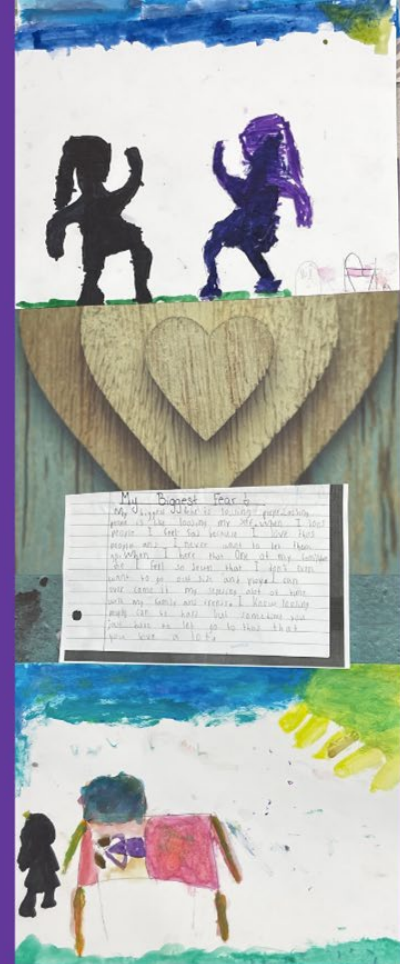 My Biggest Fear!
My biggest fear is losing people. Losing
people is like loosing my life. when I lost
people I feel sad because I love that
people and I never want to let them
go. When I here that one of my families
die I feel so down that I don't even
want to go out side and play. I can
over come it my spending alot of time
with my family and friends. I know losing
people can be hard but sometimes you
just have to let go to things that
you love a lot.